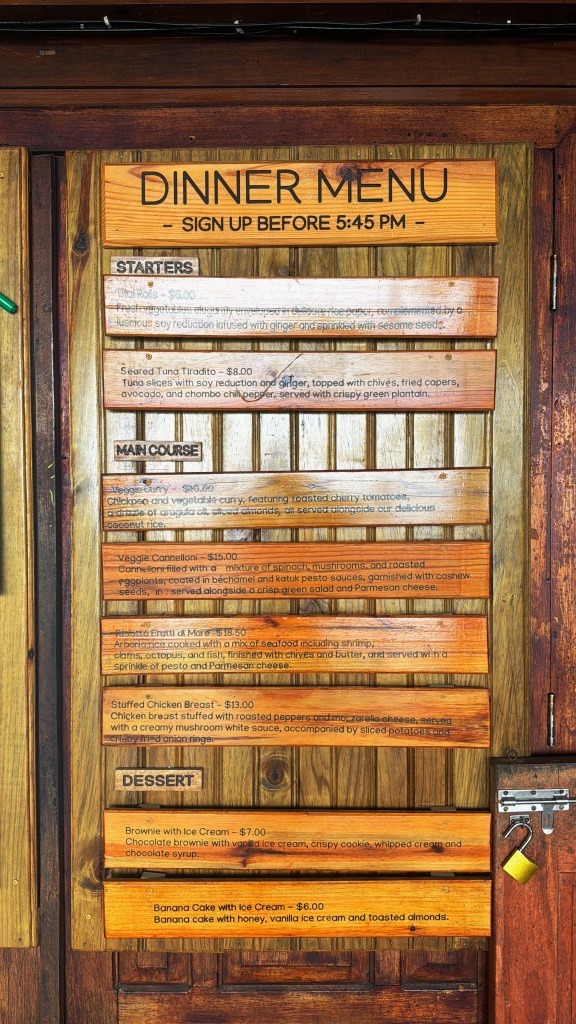 DINNER MENU
– SIGN UP BEFORE 5:45 PM –
STARTERS
Rolls – $6.00
Fresh vegetables elegantly enveloped in delicate rice paper, complemented by a
luscious soy reduction infused with ginger and sprinkled with sesame seeds.
Seared Tuna Tiradito – $8.00
Tuna slices with soy reduction and ginger, topped with chives, fried capers,
avocado, and chombo chili pepper, served with crispy green plantain.
MAIN COURSE
Veggie Curry –
Chickpea and vegetable curry, featuring roasted cherry tomatoes,
a drizzle of arugula oil, sliced almonds, all served alongside our delicious
coconut rice.
Veggie Cannelloni – $15.00
Cannelloni filled with a mixture of spinach, mushrooms, and roasted
eggplants, coated in béchamel and katuk pesto sauces, garnished with cashew
seeds, served alongside a crisp green salad and Parmesan cheese.
Risotto Frutti di Mare $18.50
Arborio rice cooked with a mix of seafood including shrimp,
clams, octopus, and fish, finished with chives and butter, and served with a
sprinkle of pesto and Parmesan cheese.
Stuffed Chicken Breast – $13.00
Chicken breast stuffed with roasted peppers and mozzarella cheese, served
with a creamy mushroom white sauce, accompanied by sliced potatoes and
crispy fried onion rings.
DESSERT
Brownie with Ice Cream – $7.00
Chocolate brownie with vanilla ice cream, crispy cookie, whipped cream and
chocolate syrup.
Banana Cake with Ice Cream – $6.00
Banana cake with honey, vanilla ice cream and toasted almonds.